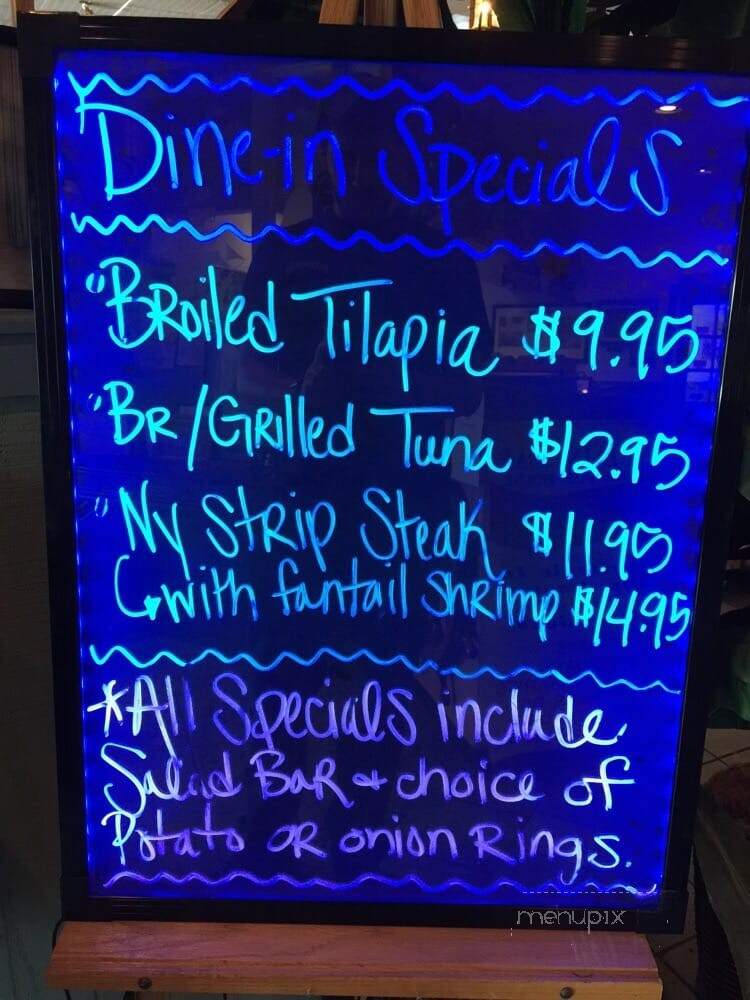 Dine-in Specials
"Broiled Tilapia $9.95
"Br/Grilled Tuna $12.95
"Ny Strip Steak $11.95
with fantail shrimp $14.95
*All Specials include
Salad Bar + choice of
Potato or onion Rings.
menupix